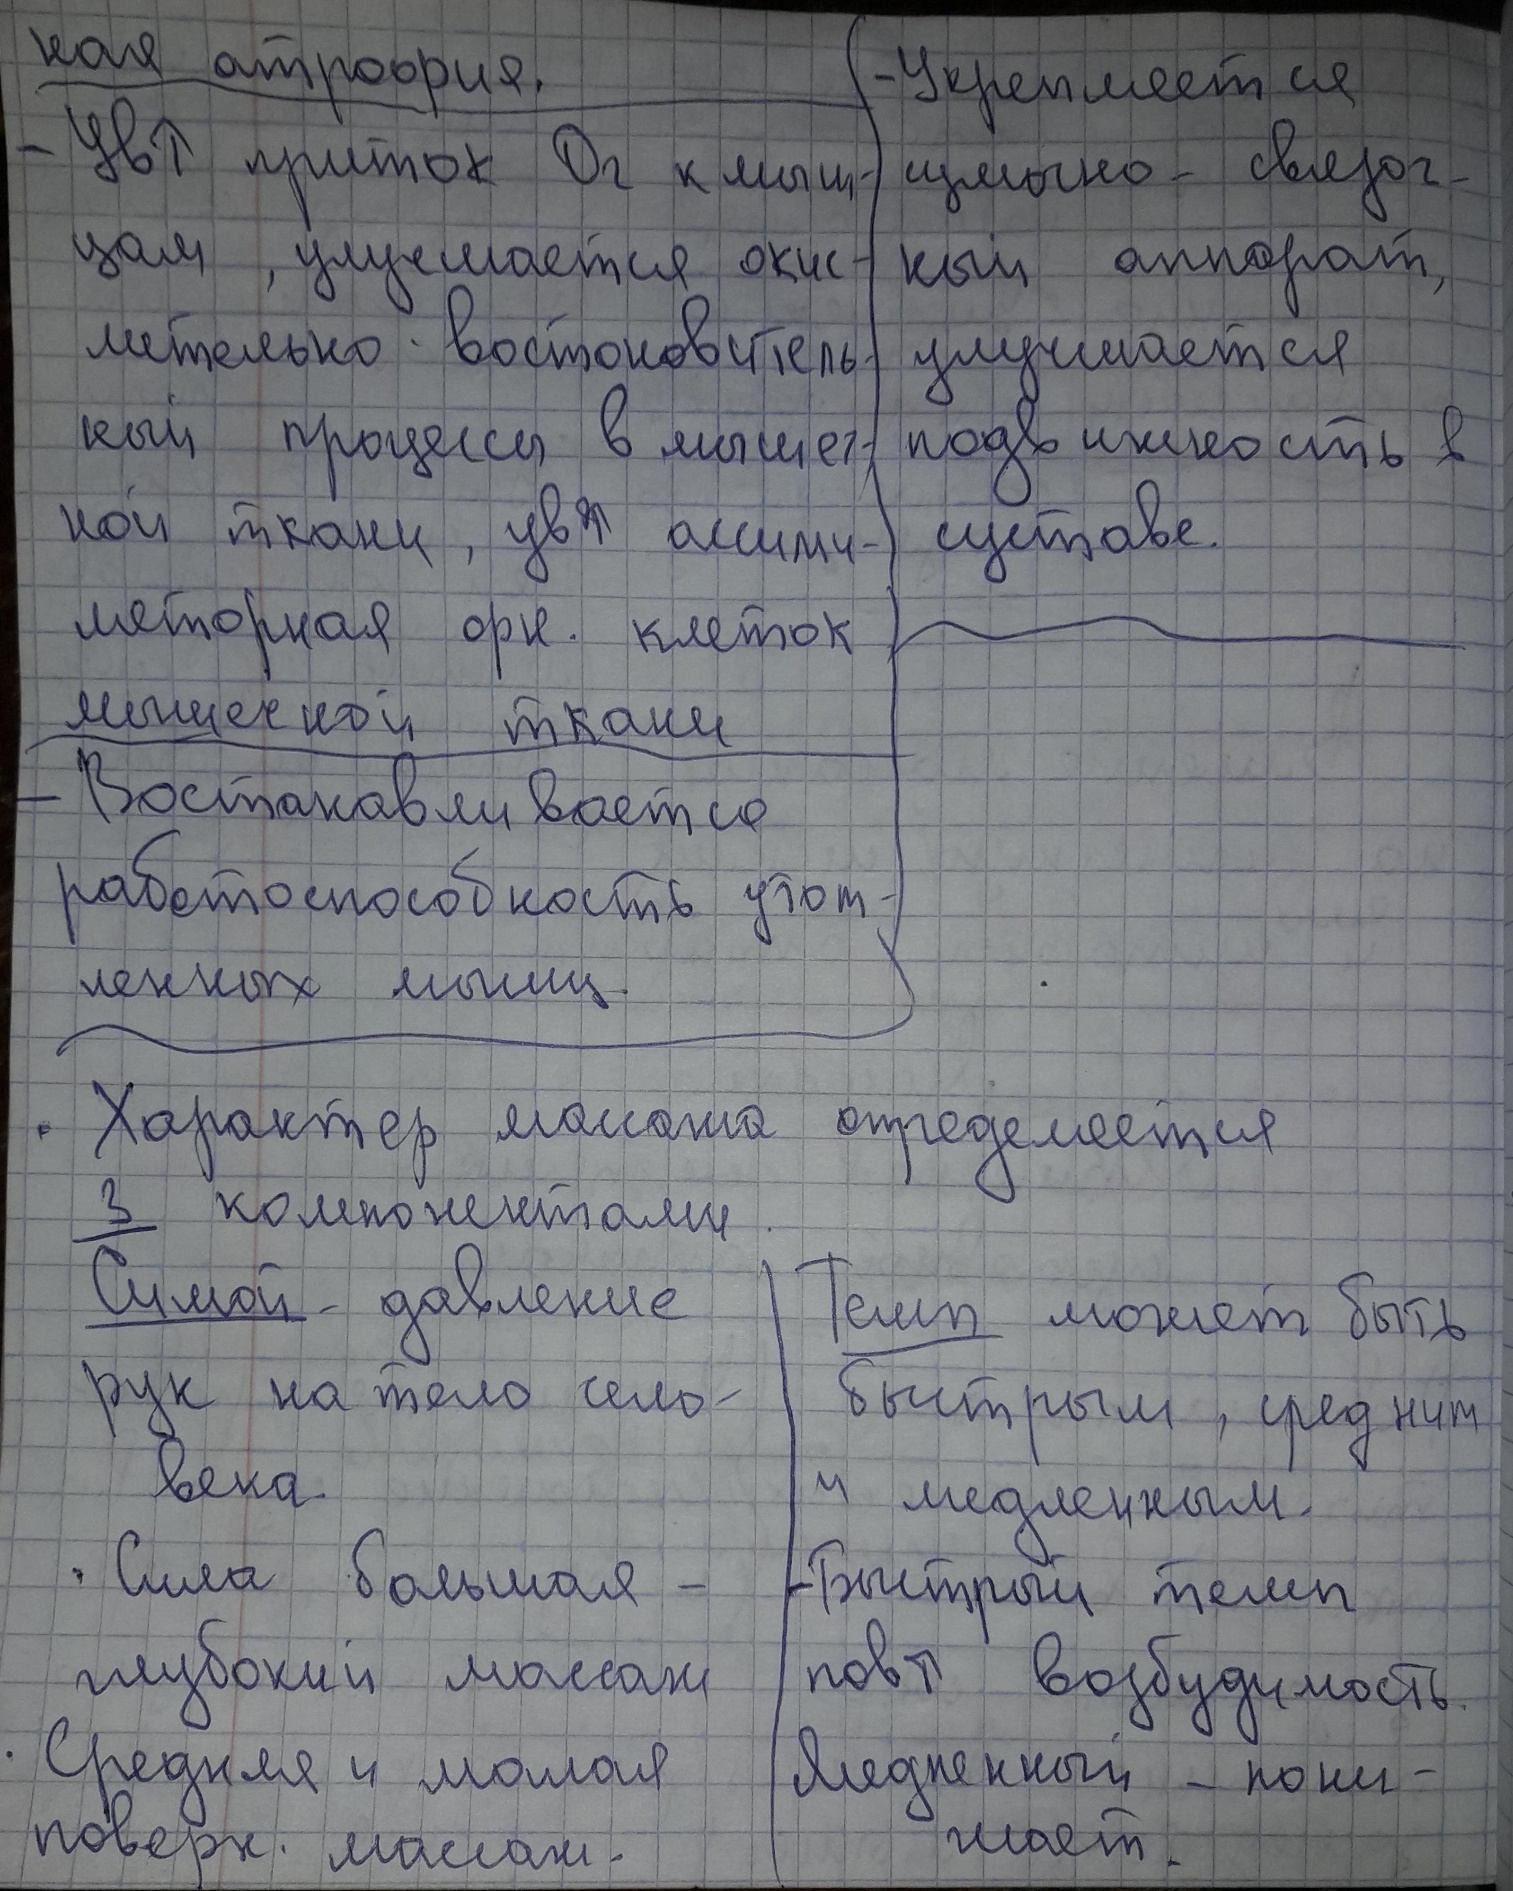 ная атрофия.
- Ув↑ приток O2 к мыш-
цам, улучшается окис-
лительно-востоновитель-
ный процессы в мышеч-
ной ткани, ув↑ ассими-
ляторная фн. клеток
мышечной ткани
- Востанавливается
работоспособность утом-
ленных мышц.
- Укрепляется
сумочно-связоч-
ный аппарат,
улучшается
подвижность в
суставе.
· Характер массажа определяется
3 компонентами.
Силой - давление
рук на тело чело-
века.
· Сила большая -
глубокий массаж
· Средняя и малая
поверх. массаж.
Темп может быть
быстрым, средним
и медленным.
- Быстрый темп
пов↑ возбудимость.
Медленный - пони-
жает.